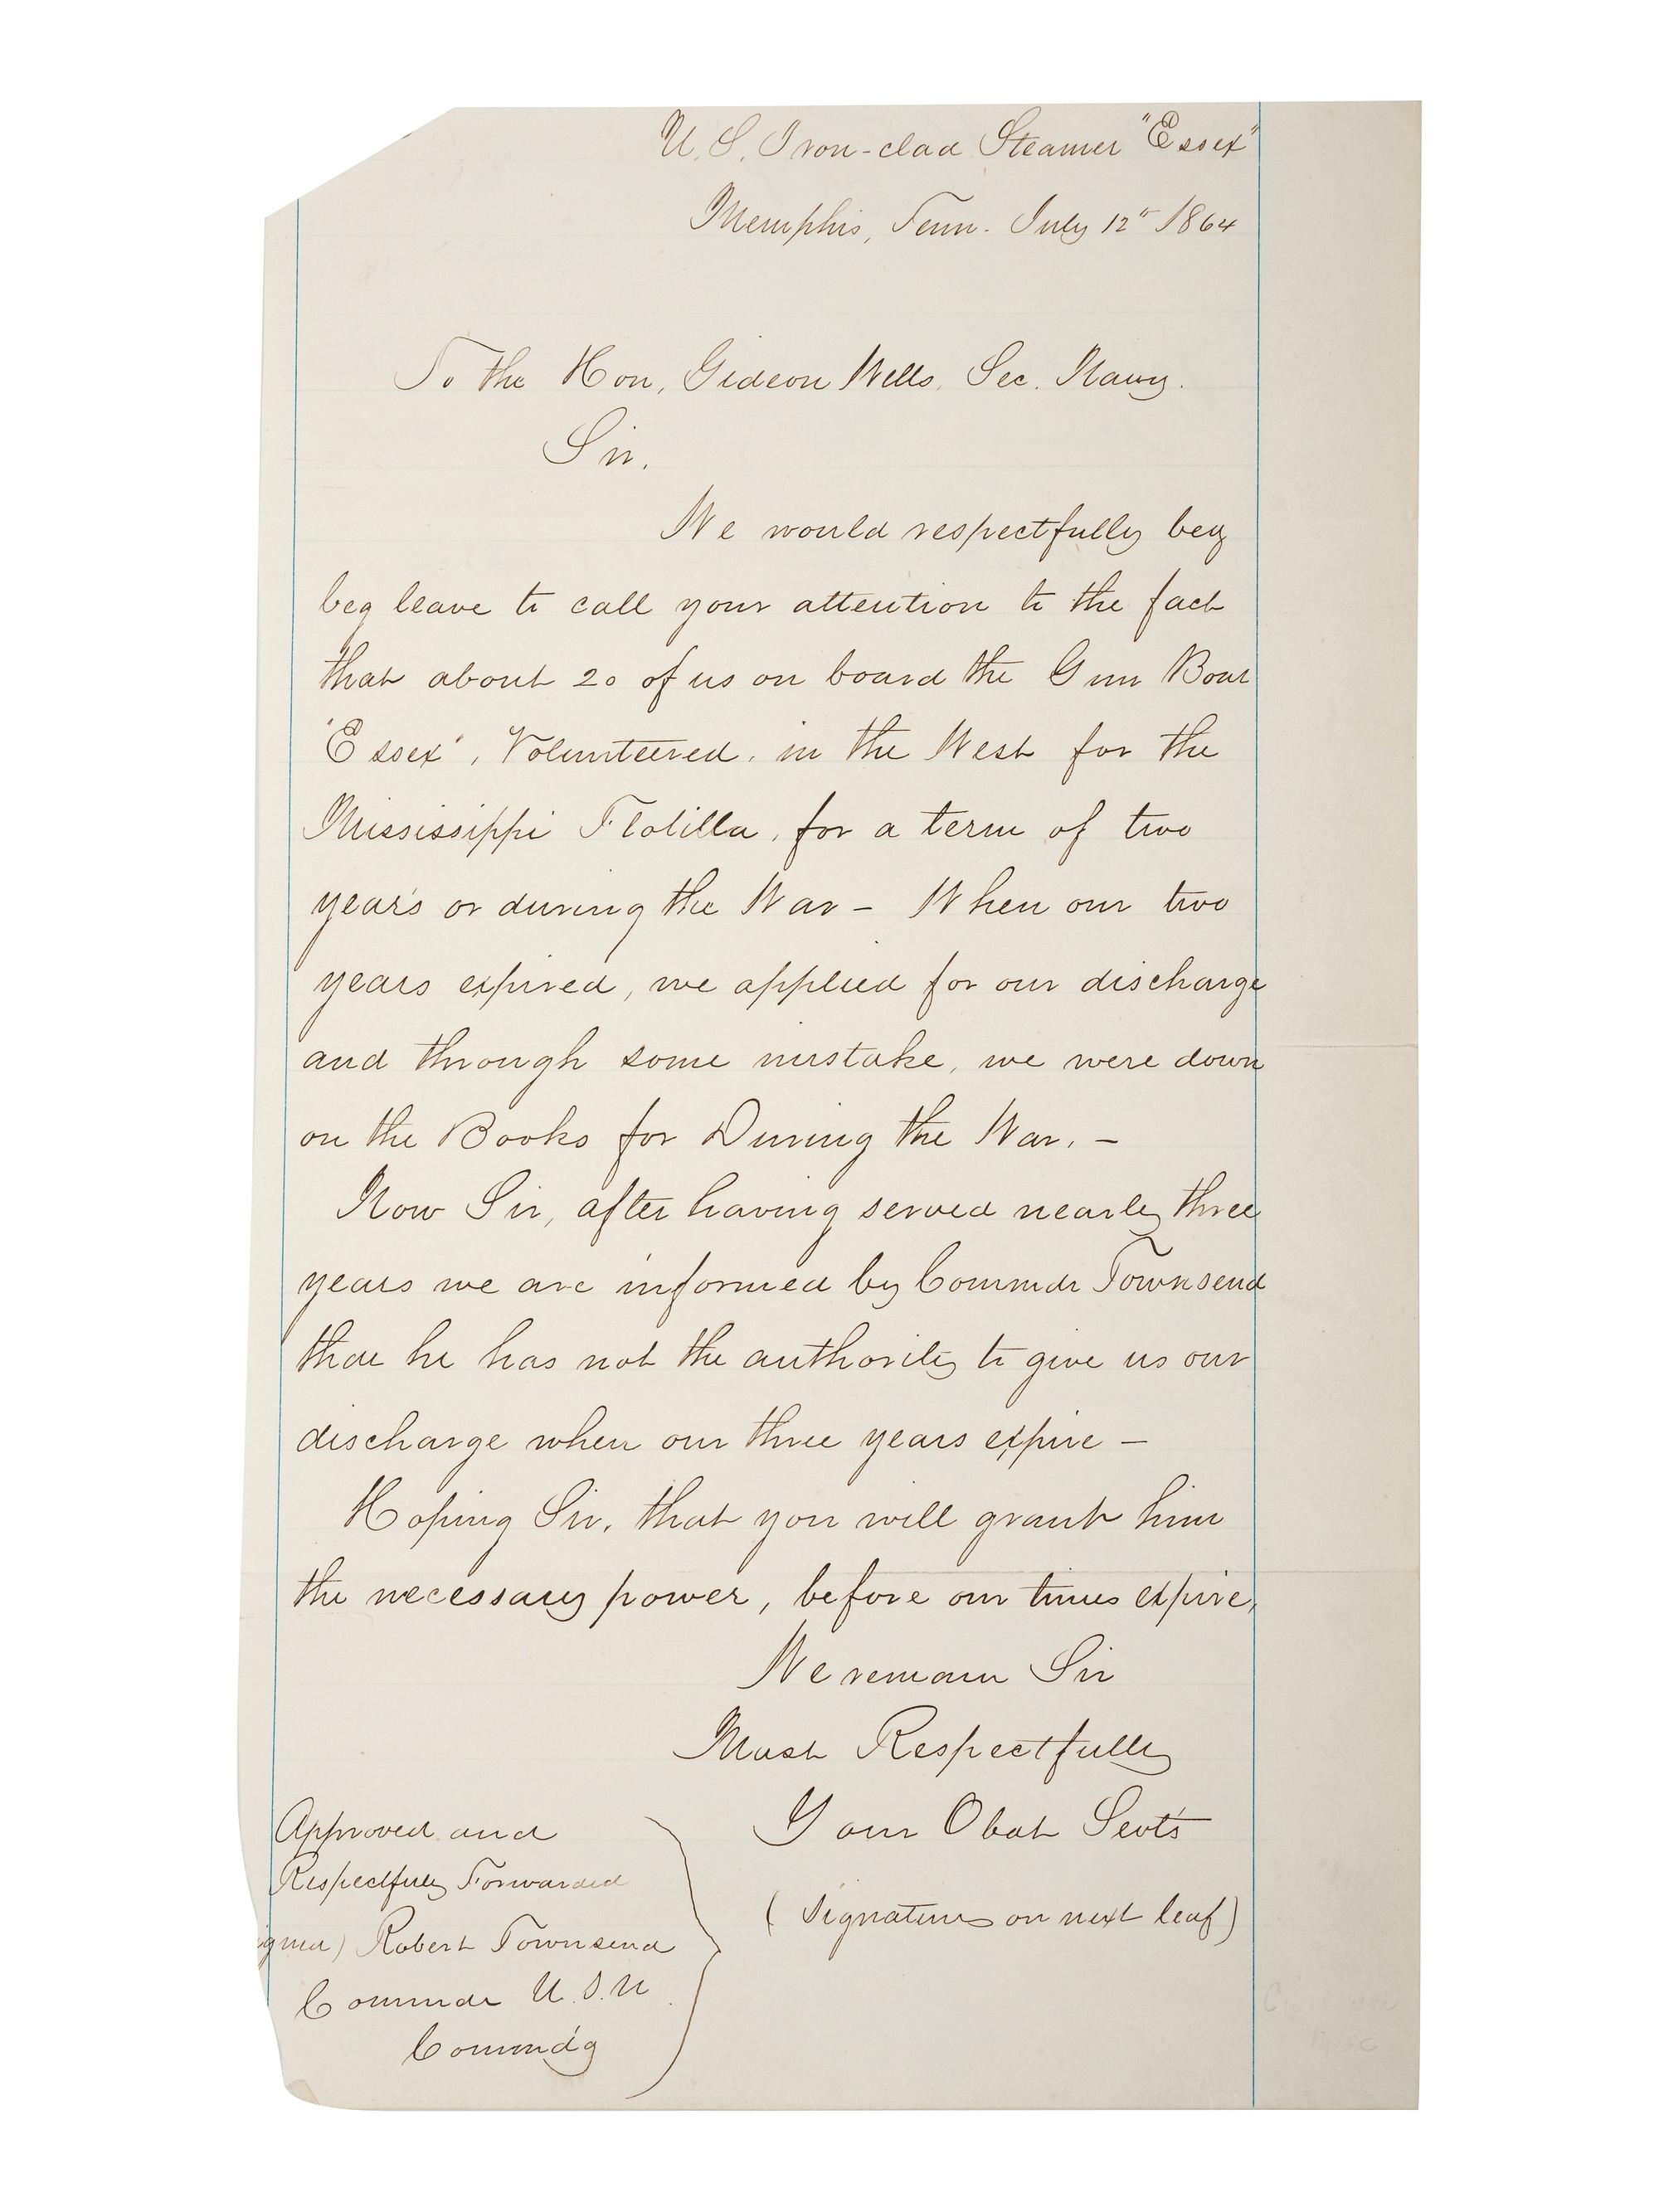 U. S. Iron-clad Steamer "Essex"
Memphis, Tenn. July 12th 1864
To the Hon, Gideon Wells, Sec. Navy.
Sir,
We would respectfully beg
beg leave to call your attention to the fact
that about 20 of us on board the Gun Boat
"Essex", Volunteered, in the West for the
Mississippi Flotilla, for a term of two
years or during the War – When our two
years expired, we applied for our discharge
and through some mistake, we were down
on the Books for During the War. –
Now Sir, after having served nearly three
years we are informed by Commdr Townsend
that he has not the authority to give us our
discharge when our three years expire –
Hoping Sir, that you will grant him
the necessary power, before our times expire,
We remain Sir
Most Respectfully
Your Obdt Servt's
(Signatures on next leaf)
Approved and
Respectfully Forwarded
gned) Robert Townsend
Commdr U.S.N.
Commd'g